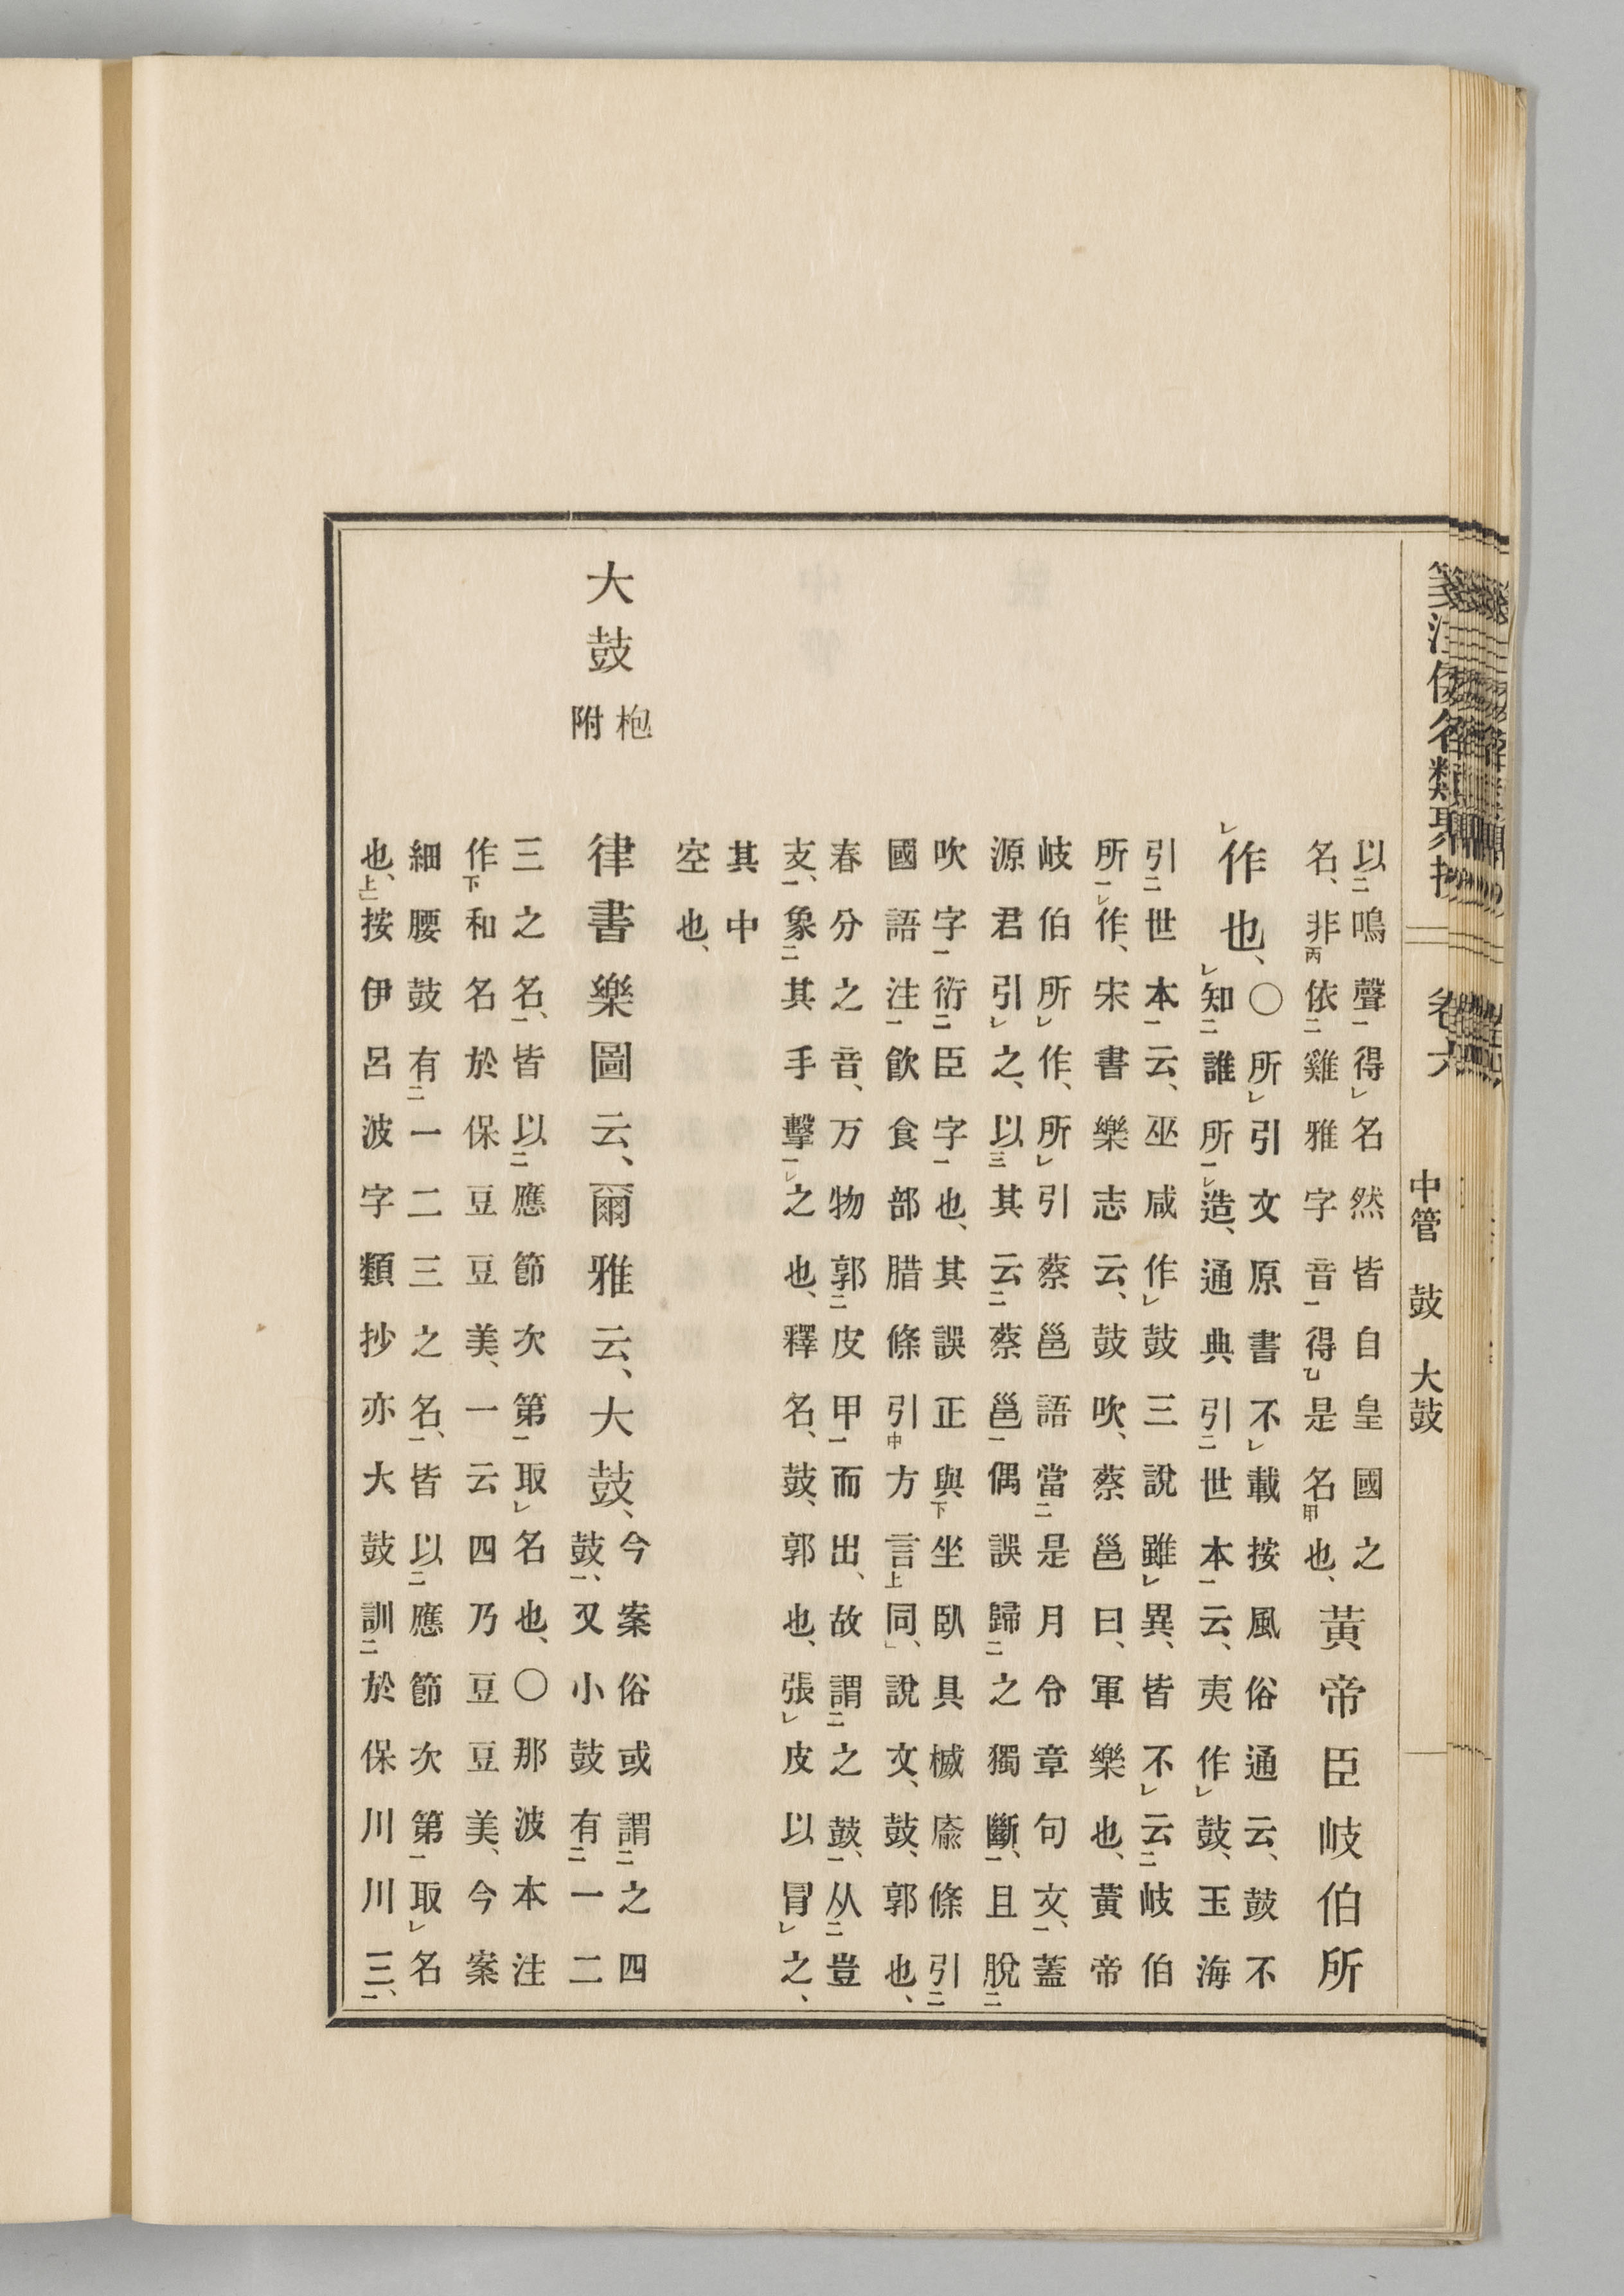 箋注倭名類聚抄 卷六 中管 鼓 大鼓
以鳴聲得名然皆自皇國之
名、非依雞雅字音得是名也、
黃帝臣岐伯所
作也、
〇所引文原書不載按風俗通云、鼓不
知誰所造、通典引世本云、夷作鼓、玉海
引世本云、巫咸作鼓三說雖異、皆不云岐伯
所作、宋書樂志云、鼓吹、蔡邕曰、軍樂也、黃帝
岐伯所作、所引蔡邕語當是月令章句文、蓋
源君引之、以其云蔡邕偶誤歸之獨斷、且脫
吹字衍臣字也、其誤正與坐臥具槭條引
國語注飮食部腊條引方言同、說文、鼓、郭也、
春分之音、万物郭皮甲而出、故謂之鼓、从豈
支、象其手擊之也、釋名、鼓、郭也、張皮以冒之、
其中
空也、
大鼓
枹
附
律書樂圖云、爾雅云、大鼓、
今案俗或謂之四
鼓、又小鼓有一二
三之名、皆以應節次第取名也、〇那波本注
作和名於保豆豆美、一云四乃豆豆美、今案
細腰鼓有一二三之名、皆以應節次第取名
也、按伊呂波字類抄亦大鼓訓於保川川三、